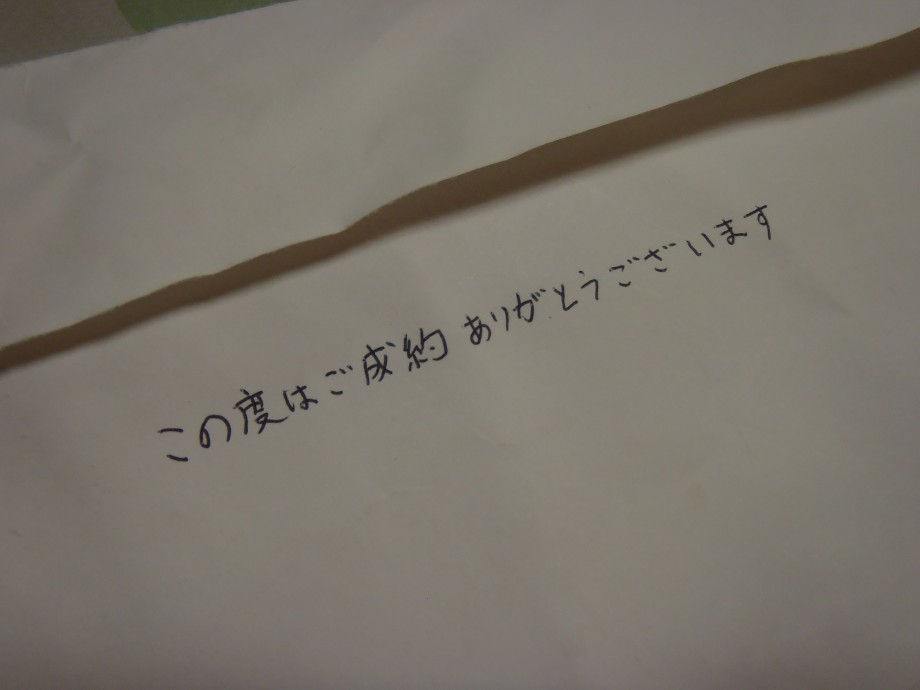 この度はご成約ありがとうございます